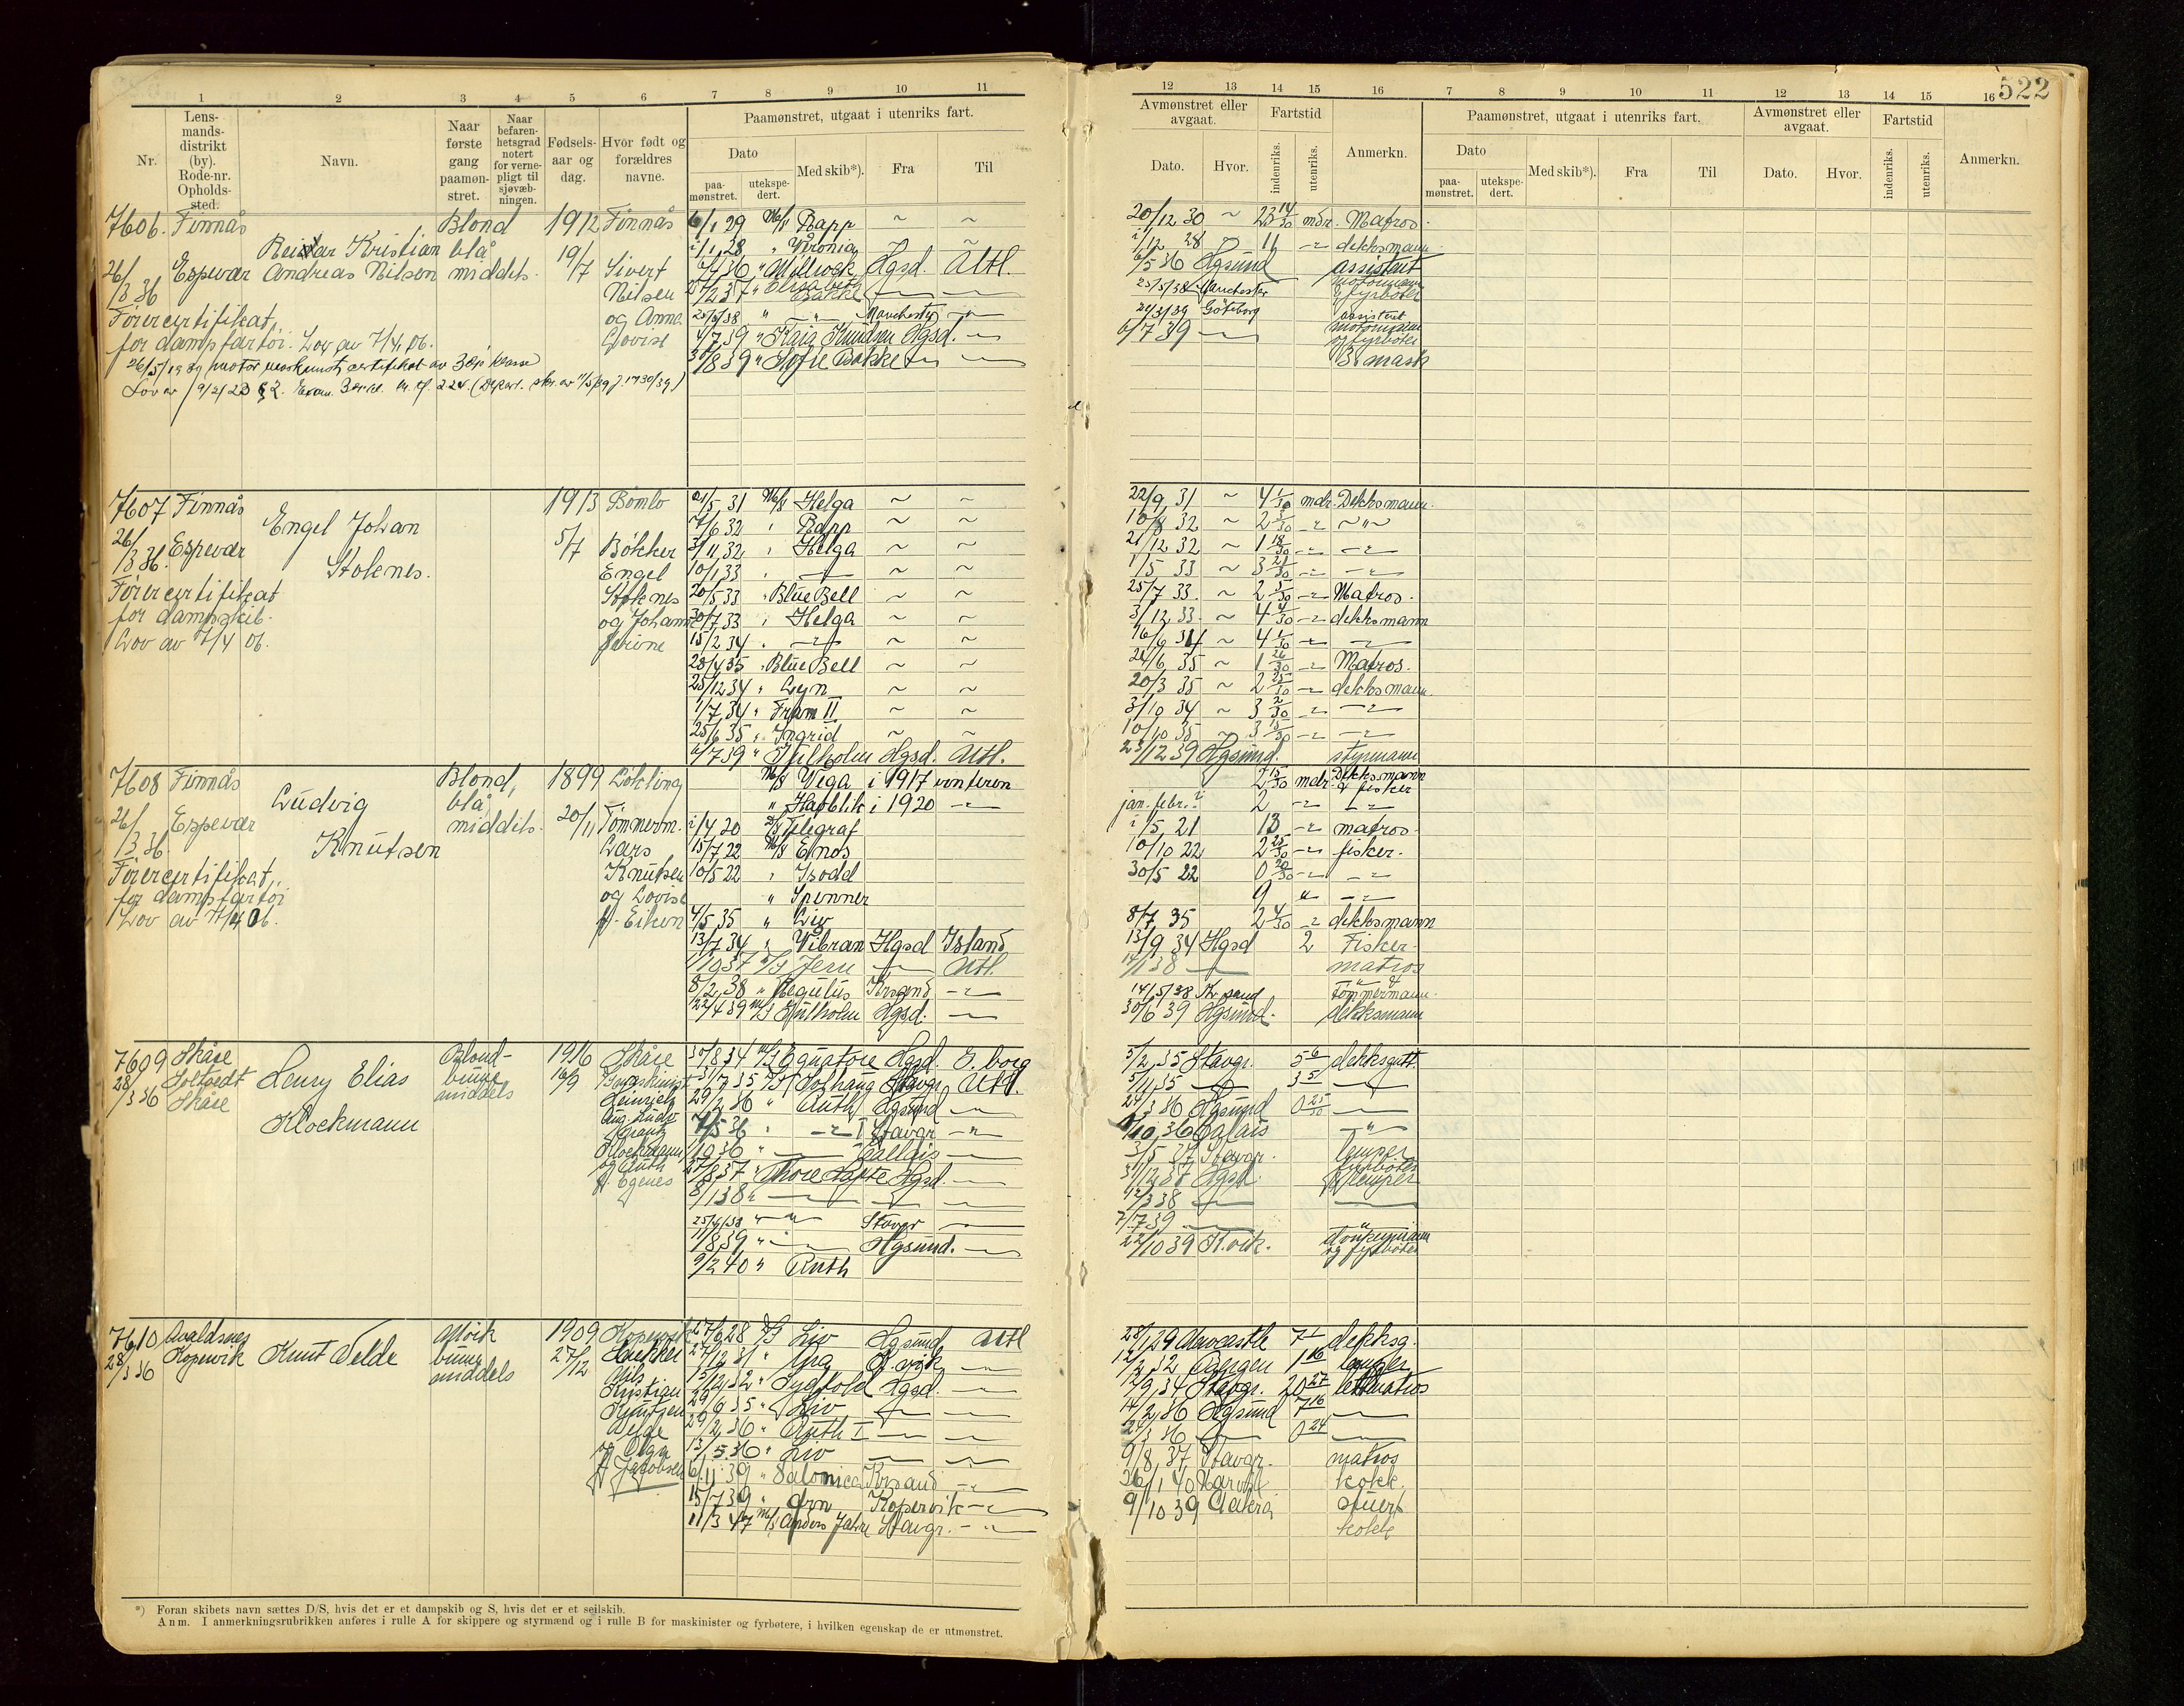 522
1 2 3 4 5 6 7 8 9 10 11
Nr.
Lens-
mands-
distrikt
(by).
Rode-nr.
Opholds-
sted.
Navn.
Naar
første
gang
paamøn-
stret.
Naar
befaren-
hetsgrad
notert
for verne-
pligt til
sjøvæb-
ningen.
Fødsels-
aar og
dag.
Hvor født og
forældres
navne.
Paamønstret, utgaat i utenriks fart.
Dato
paa-
mønstret.
utekspe-
dert.
Med skib*).
Fra
Til
12 13 14 15 16
Avmønstret eller
avgaat.
Dato.
Hvor.
Fartstid
indenriks.
utenriks.
Anmerkn.
7 8 9 10 11 12 13 14 15 16
Paamønstret, utgaat i utenriks fart.
Dato
paa-
mønstret.
utekspe-
dert.
Med skib*).
Fra
Til
Avmønstret eller
avgaat.
Dato.
Hvor.
Fartstid
indenriks.
utenriks.
Anmerkn.
7606. Finnås Blond 1912 Finnås
Reidar Kristian blå 19/7 Sivert
26/3 36 Espevær Andreas Nilsen middels. Nilsen
og Anna
Lovise
Førercertifikat
for dampfartøi. Lov av 7/4, 06.
26/5/1939 motormaskinist certifikat av 3dje klasse
6/1 29 M/S Rapp ~ ~ 20/12 30 ~ 23 14/30 mdr. Matros.
i/1, 28 " Veronia ~ i/12 28 11 -"- dekksmann.
Hgsd. Utl. 6/5 36 Hgsund assistent
27/2 37 " Elisabeth Bakke 25/5/38 Manchester motormann & fyrbøter
25/5/38 " -"- Manchester -"- 24/3/39 Göteborg assistent
4/7 39 " Kaia Knudsen Hgsd. -"- 6/7 39 motormann og fyrbøter
31/8 39 " Sofie Bakke 3. mask
7607 Finnås 1913 Bømlo
Engel Johan 5/7 Bøkker
26/3 36. Espevær Stokenes. Engel
Stokenes
og Johanne
Førercertifikat
for dampskib.
Lov av 7/4 06.
21/5, 31 M/S Helga ~ ~ 22/9, 31 ~ 4 1/30 mdr. Dekksmann.
7/6 32 " Rapp ~ ~ 10/8 32 ~ 2 3/30 -"- ~"~
3/11, 32 " Helga ~ ~ 21/12 32 ~ 1 18/30 -"- -"-
10/1, 33 " -"- ~ ~ 1/5 33 ~ 3 21/30 -"- -"-
20/5 33 " Blue Bell ~ ~ 25/7 33. ~ 2 5/30 -"- Matros.
30/7, 33 " Helga ~ ~ 3/12, 33 ~ 4 4/30 -"- dekksmann
15/2 34 " -"- ~ ~ 16/6 34 ~ 4 1/30 -"- -"-
28/4 35 " Blue Bell ~ ~ 24/6, 35 ~ 1 26/30 -"- Matros.
25/12 34 " Lyn ~ ~ 20/3 35 ~ 2 25/30 -"- dekksmann.
1/7, 34 " Fram II ~ ~ 3/10 34 ~ 3 2/30 -"- -"-
25/6 35 " Ingrid ~ ~ 10/10 35 3 15/30 -"- -"-
6/7 39 " Hgsd. Utl. 23/12 39 Hgsund. styrmann
7608 Finnås Blond, 1899 Løkling
Ludvig blå 20/11 Tømmerm.
26/3 36. Espevær Knutsen middels. Lars
Knutsen
og Lovise
f. Eiken
Førercertifikat,
for dampfartøi
Lov av 7/4 06.
M/S Vega i 1917 2 15/30 mdr. Dekksmann & fisker
" Havblik i 1920 -"- jan-febr. 2 -"- -"-
i/4, 20 D/S Telegraf i/5, 21 13 -"- matros.
15/7, 22 M/S Enos 10/10 22 2 25/30 -"- fisker.
10/5 22 " Isodd 30/5 22 0 20/30 -"- -"-
" Spenner 9 " -"-
4/5, 35 " Liv 8/7 35 2 4/30 -"- dekksmann
13/7, 34 " Vibran Hgsd Island 13/9 34 Hgsd 2 Fisker.
Utl. matros
8/2, 38 " Regulus Krsand -"- 14/5/38 Kr.sand Tømmermann.
22/4 39 M/S Hgsd. -"- 30/6 39 Hgsund. dekksmann
7609 Skåre Blond- 1916 Skåre
28/3 36 Henry Elias 16/9
Skåre Klockmann middels Heinrich
Klockmann
og Ruth
f. Egenes
30/8 34 M/S Equatore Hgsd. G. borg 5/2, 35 Stavgr. 5 6 dekksgutt.
Solhaug Stavgr. Utl. 5/11, 35 -"- 3 5 -"-
29/2, 36 " Ruth Hgsund -"- 24/3 36 Hgsund 0 25/30 -"-
7/5 36 " -"- I Stavgr -"- 1/10, 36 Calais -"-
1/10 36 " -"- Callais -"- 3/5 37 Stavgr. lemper
27/8 37 " Hgsd. -"- 31/12 37 Hgsd. fyrbøter & lemper
8/1 38 " -"- 12/3 38 -"-
25/4/38 " -"- Stavgr -"- 7/7 39
11/8 39 " -"- Hgsund. -"- 22/10 39 donkeymann og fyrbøter
9/2 40 " Ruth
7610 Avaldsnes Mørk 1909 Kopervik
28/3 36 Kopervik Knut Velde 27/12
middels Nils
Kristian
Knutsen
Velde
og Olga
f. Jacobsen
27/6 28 D/S Liv Hgsund Utl 28/1 29 Newcastle 7 1 dekksg.
K. vik -"- 12/2 32 Bergen 1 16 lemper
15/12, 32 " Sydfold Hgsd. -"- 12/9, 34 Stavgr. 20 27 lettmatros
29/6 35 " Liv -"- 14/2, 36 Hgsund 7 16 -"-
29/2, 36 " Ruth I -"- 24/3 36 0 24
13/5. 36 " Liv -"- 9/8, 37 Stavgr. matros
6/11 39 " Salonica Krsand -"- 26/1 40 Narvik kokk.
15/7 39 " Ørn Kopervik -"- 9/10 39 stuert
11/3 47 M/S Anders Jahre Stavgr. -"- kokk
*) Foran skibets navn sættes D/S, hvis det er et dampskib og S, hvis det er et seilskib.
Anm. I anmerkningsrubrikken anføres i rulle A for skippere og styrmænd og i rulle B for maskinister og fyrbøtere, i hvilken egenskap de er utmønstret.